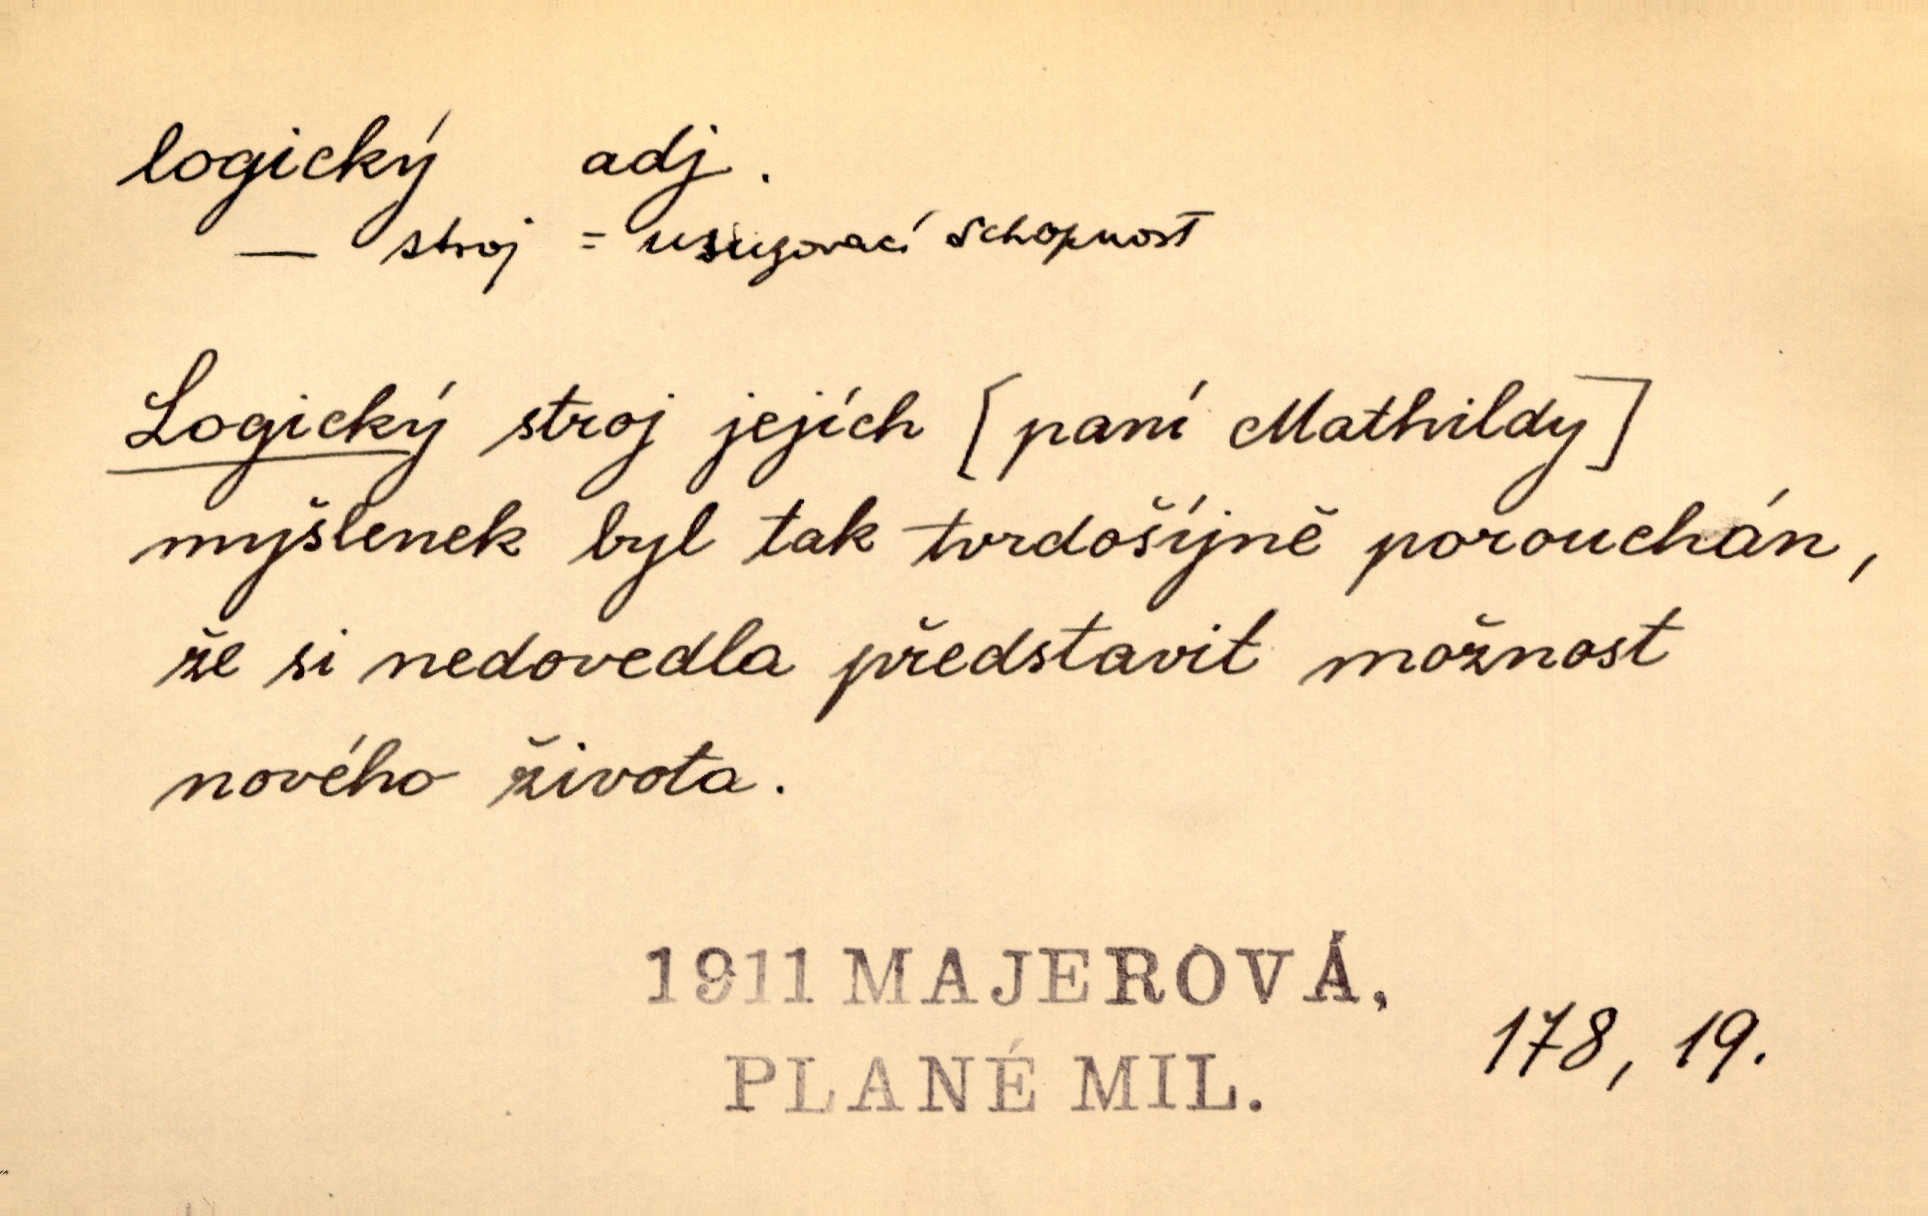 logický adj.
— stroj = usuzovací schopnost
Logický stroj jejích [paní Mathildy]
myšlenek byl tak tvrdošíjně porouchán,
že si nedovedla představit možnost
nového života.
1911 MAJEROVÁ,
PLANÉ MIL.
178, 19.